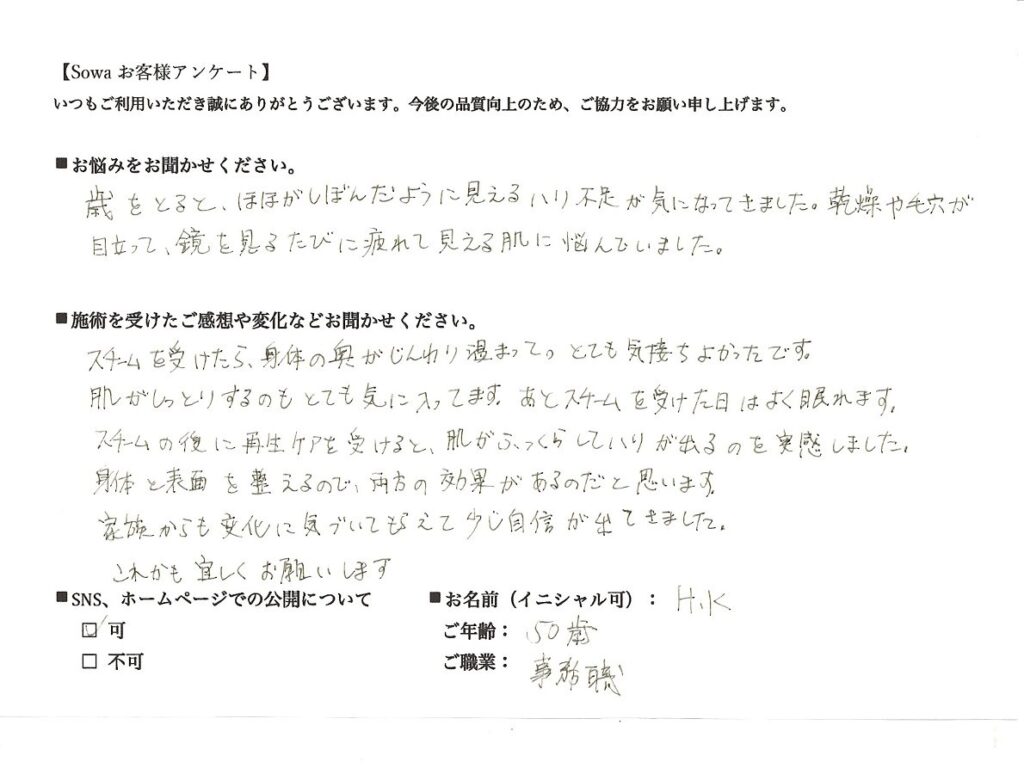 【Sowa お客様アンケート】
いつもご利用いただき誠にありがとうございます。今後の品質向上のため、ご協力をお願い申し上げます。
■お悩みをお聞かせください。
歳をとると、ほほがしぼんだように見えるハリ不足が気になってきました。乾燥や毛穴が
目立って、鏡を見るたびに疲れて見える肌に悩んでいました。
■施術を受けたご感想や変化などお聞かせください。
スチームを受けたら、身体の奥がじんわり温まって。とても気持ちよかったです。
肌がしっとりするのもとても気に入ってます。あとスチームを受けた日はよく眠れます。
スチームの後に再生ケアを受けると、肌がふっくらしてハリが出るのを実感しました。
身体と表面を整えるので、両方の効果があるのだと思います。
家族からも変化に気づいてもらえて少し自信が出てきました。
これかも宜しくお願いします
■SNS、ホームページでの公開について
☑ 可
□ 不可
■お名前（イニシャル可）： H.K
ご年齢： 50歳
ご職業： 事務職